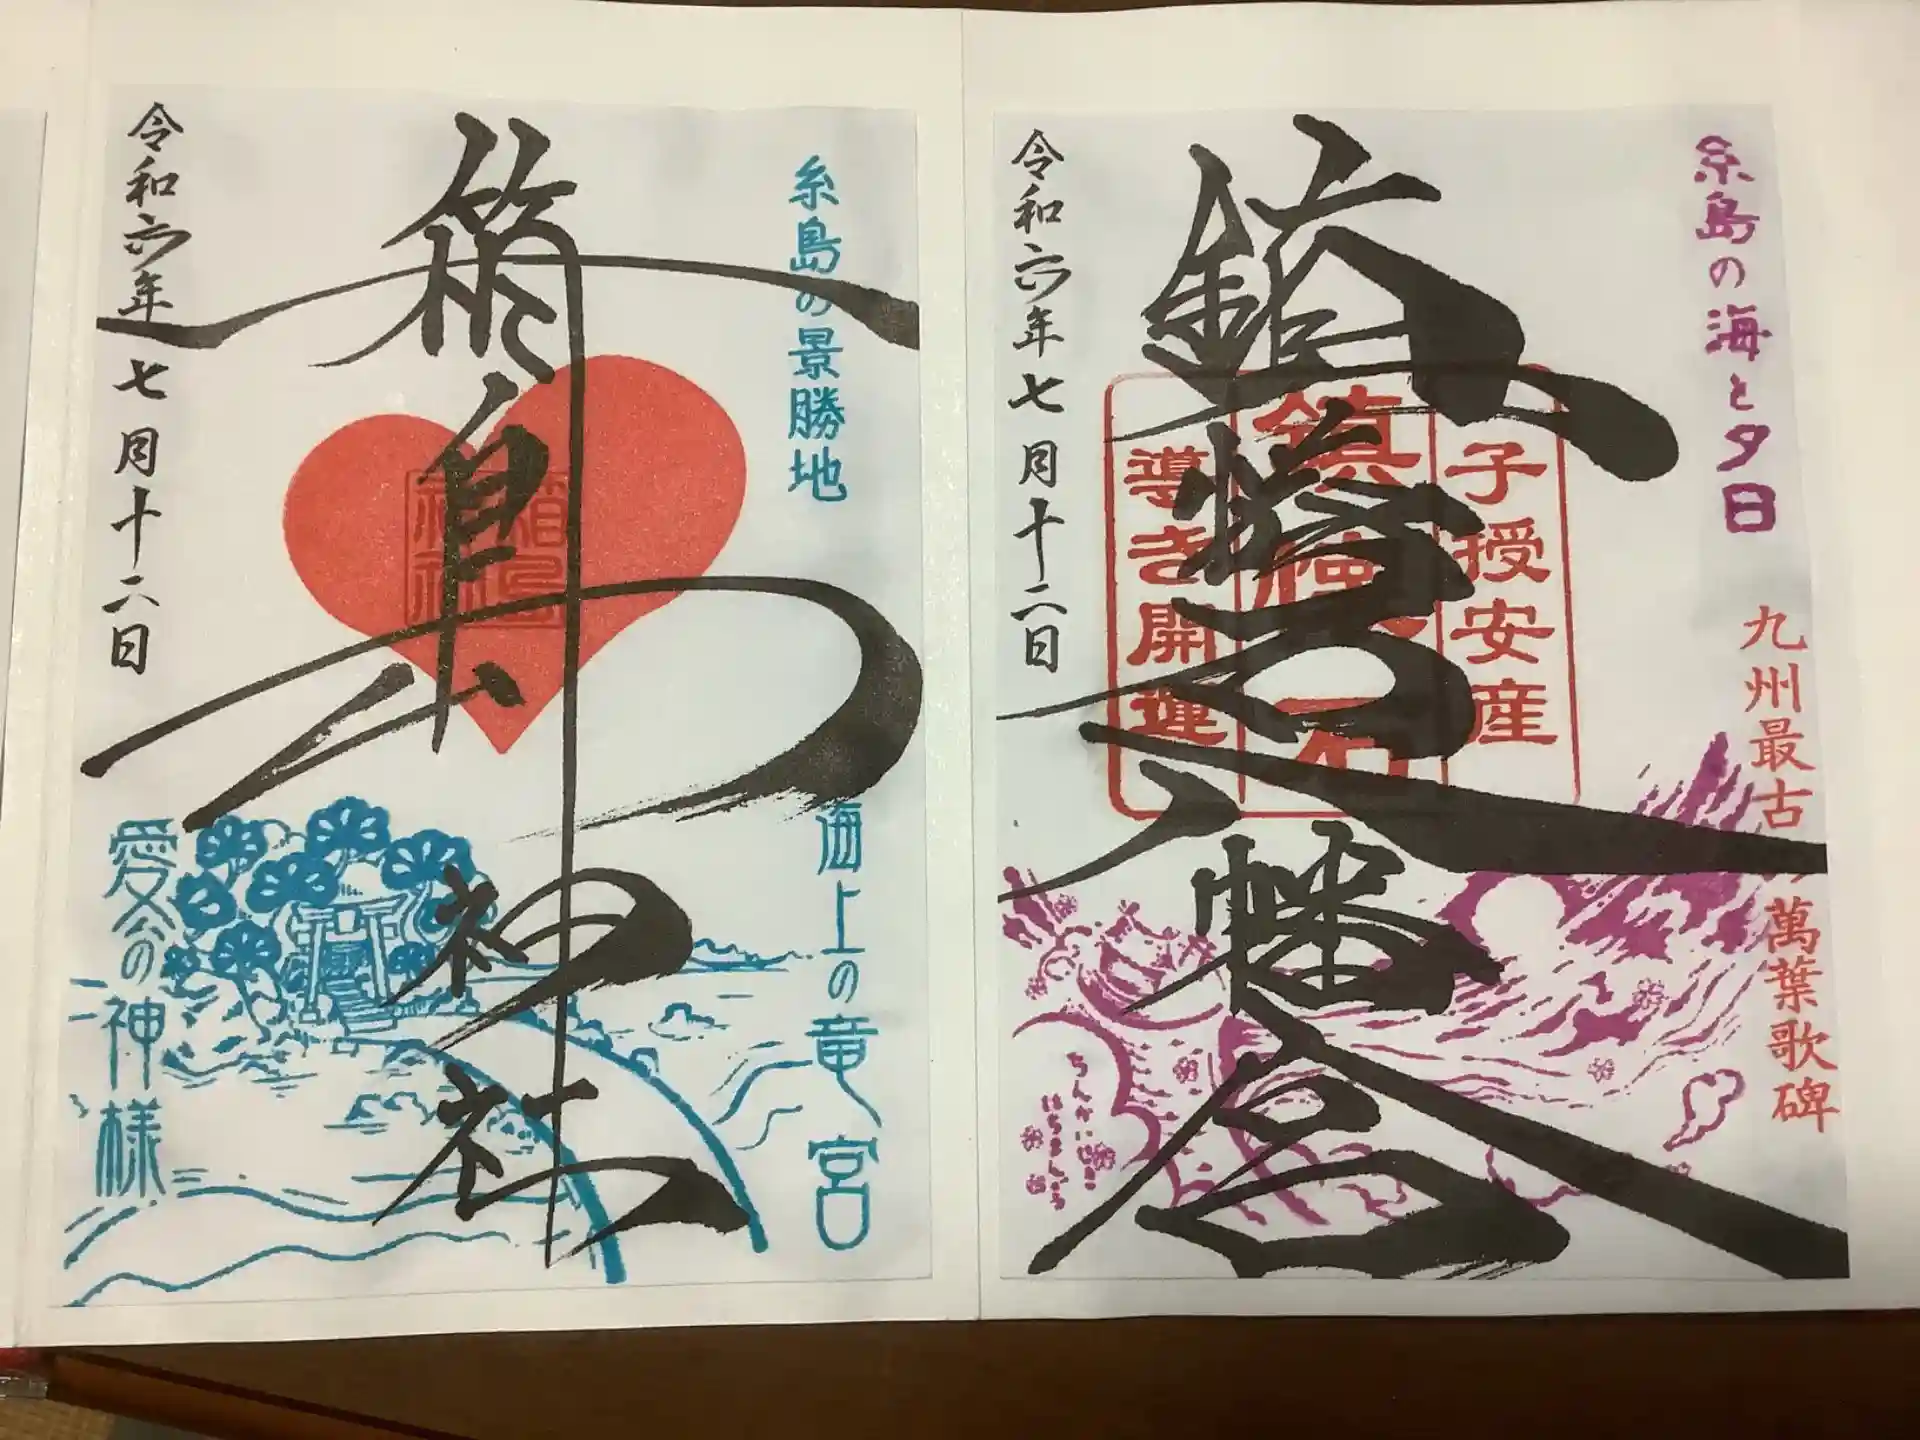 糸島の海と夕日
九州最古の萬葉歌碑
子授安産
鎮懐石
導き開運
鎮懐石八幡宮
ちんかいせき
はちまんぐう
令和六年七月十二日
糸島の景勝地
海上の竜宮
箱島神社
箱島
神社
愛念の神様
令和六年七月十二日